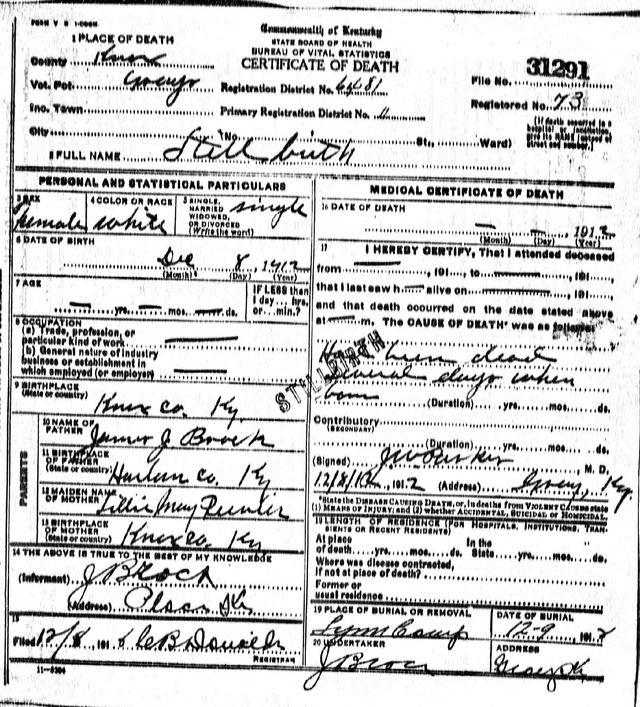 FORM V S 1-
Commonwealth of Kentucky
STATE BOARD OF HEALTH
BUREAU OF VITAL STATISTICS
CERTIFICATE OF DEATH
1 PLACE OF DEATH
County Knox
Vot. Pct
Inc. Town
City No. St., Ward)
Registration District No.
Primary Registration District No.
File No. 31291
Registered No. 73
(If death occurred in a hospital or institution, give its NAME instead of street and number.)
2 FULL NAME Still birth
PERSONAL AND STATISTICAL PARTICULARS
3 SEX female
4 COLOR OR RACE white
5 SINGLE, MARRIED WIDOWED, OR DIVORCED (Write the word) single
6 DATE OF BIRTH
Dec 8, 1912
(Month) (Day) (Year)
7 AGE
yrs. mos. ds.
IF LESS than 1 day... hrs. or... min.?
8 OCCUPATION
(a) Trade, profession, or particular kind of work
(b) General nature of industry business or establishment in which employed (or employer)
9 BIRTHPLACE (State or country)
Knox co. Ky
PARENTS
10 NAME OF FATHER James J. Brock
11 BIRTHPLACE OF FATHER (State or country) Harlan co. Ky
12 MAIDEN NAME OF MOTHER Lillie May
13 BIRTHPLACE OF MOTHER (State or country) Knox co. Ky
14 THE ABOVE IS TRUE TO THE BEST OF MY KNOWLEDGE
(Informant) J Brock
(Address)
15
Filed 12/8 191
REGISTRAR
MEDICAL CERTIFICATE OF DEATH
16 DATE OF DEATH
, 1912
(Month) (Day) (Year)
17 I HEREBY CERTIFY, That I attended deceased
from , 191 , to , 191 ,
that I last saw h alive on , 191 ,
and that death occurred on the date stated above
at m. The CAUSE OF DEATH* was as follows:
been dead
several days when
born
STILLBIRTH
(Duration) yrs. mos. ds.
Contributory
(SECONDARY)
(Duration) yrs. mos. ds.
(Signed) M. D.
12/8/12, 1912 (Address) Gray, Ky
*State the DISEASE CAUSING DEATH, or, in deaths from VIOLENT CAUSES state (1) MEANS OF INJURY; and (2) whether ACCIDENTAL, SUICIDAL or HOMICIDAL.
18 LENGTH OF RESIDENCE (FOR HOSPITALS, INSTITUTIONS, TRANSIENTS OR RECENT RESIDENTS)
At place of death yrs. mos. ds. In the State yrs. mos. ds.
Where was disease contracted, if not at place of death?
Former or usual residence
19 PLACE OF BURIAL OR REMOVAL
Lynn Camp
DATE OF BURIAL
12-9, 191
20 UNDERTAKER
J Brock
ADDRESS
Gray Ky